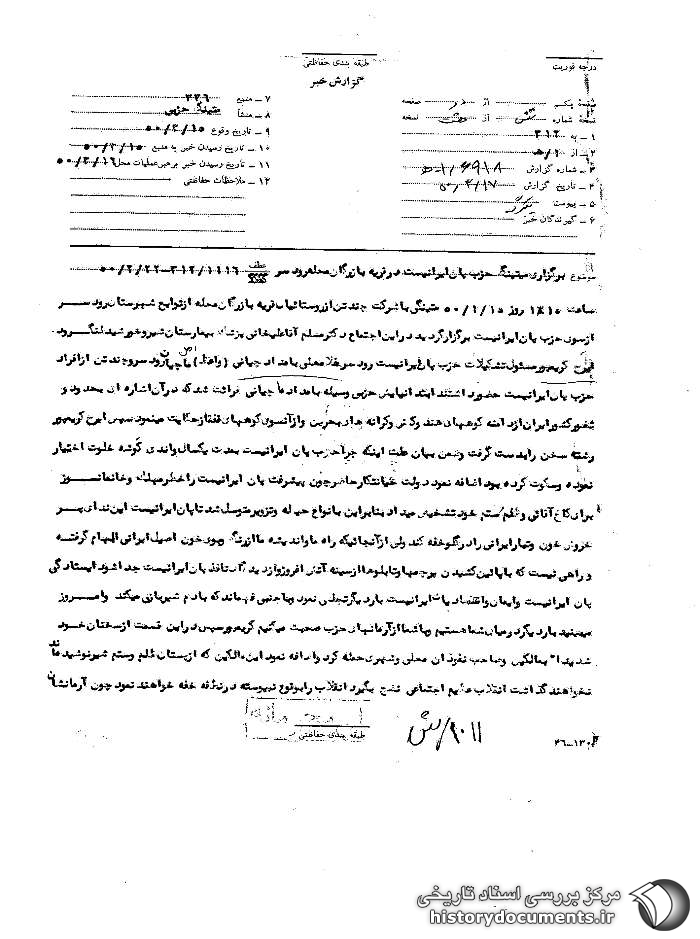 درجه فوریت
طبقه بندی حفاظتی
گزارش خبر
نسخه یکم از در صفحه
نسخه شماره شش از هفت نسخه
۱ ـ به ۳۱۲
۲ ـ از ۱/ه
۳ ـ شماره گزارش
۴ ـ تاریخ گزارش
۵ ـ پیوست ندارد
۶ ـ گیرندگان خبر
۷ ـ منبع ۳۳۶
۸ ـ منشأ میتینگ حزبی
۹ ـ تاریخ وقوع ۵۰/۲/۱۵
۱۰ ـ تاریخ رسیدن خبر به منبع ۵۰/۲/۱۵
۱۱ ـ تاریخ رسیدن خبر برهبر عملیات محل ۵۰/۲/۱۶
۱۲ ـ ملاحظات حفاظتی
موضوع برگزاری میتینگ حزب پان ایرانیست در قریه بازرگان محله رود سر عطف ۳۱۲/۱۱۱۶-۵۰/۲/۲۲
ساعت روز ۵۰/۲/۱۵ میتینگی با شرکت چند تن از روستائیان قریه بازرگان محله از توابع شهرستان رود ســر
از سوی حزب پان ایرانیست برگزار گردید در این اجتماع دکتر مسلم آقا علیخانی پزشک بیمارستان شیر و خورشید لنگــرود
ایرج کریمپور مسئول تشکیلات حزب پان ایرانیست رود سر غلامعلی بامداد جیانی (واعظ) رود سر و چند تن از افراد
حزب پان ایرانیست حضور داشتند ابتدا نیایش حزبی وسیله بامداد جیانی قرائت شد که در آن اشاره ای بحدود و
ثغور کشور ایران از دامنه کوههای هند و کش و کرانه های بحرین و از آنسوی کوههای قفقاز حکایت مینمود سپس ایرج کریمپور
رشته سخن را بدست گرفت وضمن بیان علت اینکه چرا حزب پان ایرانیست بمدت یکسال واندی گوشه خلوت اختیار
نموده وسکوت کرده بود اضافه نمود دولت خیانتکار حاضر چون پیشرفت پان ایرانیست را خطر مهلک وخانمانســوز
برای کاخ آقائی وظلم وستم خود تشخیص میداد بنابراین با انواع حیله وتزویر متوسل شد تا پان ایرانیست این ندای پــر
خروش خون وتبار ایرانی را در گلو خفه کند ولی از آنجائیکه راه ما واندیشه ما از رنگ وبوی خون اصیل ایرانی الهام گرفتــه
و راهی نیست که با پائین کشیدن پرچمها وتابلوها از سینه آتش افروز وازدیدگان نافذ پان ایرانیست جدا شود ایستادگی
پان ایرانیست وایمان واعتقاد پان ایرانیست بار دیگر تجلی نمود وبا جنبی فهماند که با دم شیر بازی میکند وامــروز
میبینید بار دیگر در میان شما هستیم وبا شما از آرمانهای حزب صحبت میکنیم کریمپور سپس در این قسمت از سخنان خــود
شدیدا بمالکین وصاحب نفوذان محلی وشهری حمله کرد واضافه نمود این مالکین که از پستان ظلم وستم شیر نوشیده اند
نخواهند گذاشت انقلاب عظیم اجتماعی نضج بگیرد انقلاب را بوقوع نپیوسته در نطفه خفه خواهند نمود چون آرمانشان
طبقه بندی حفاظتی
۴۶-۱۳۰
مرکز بررسی اسناد تاریخی
historydocuments.ir